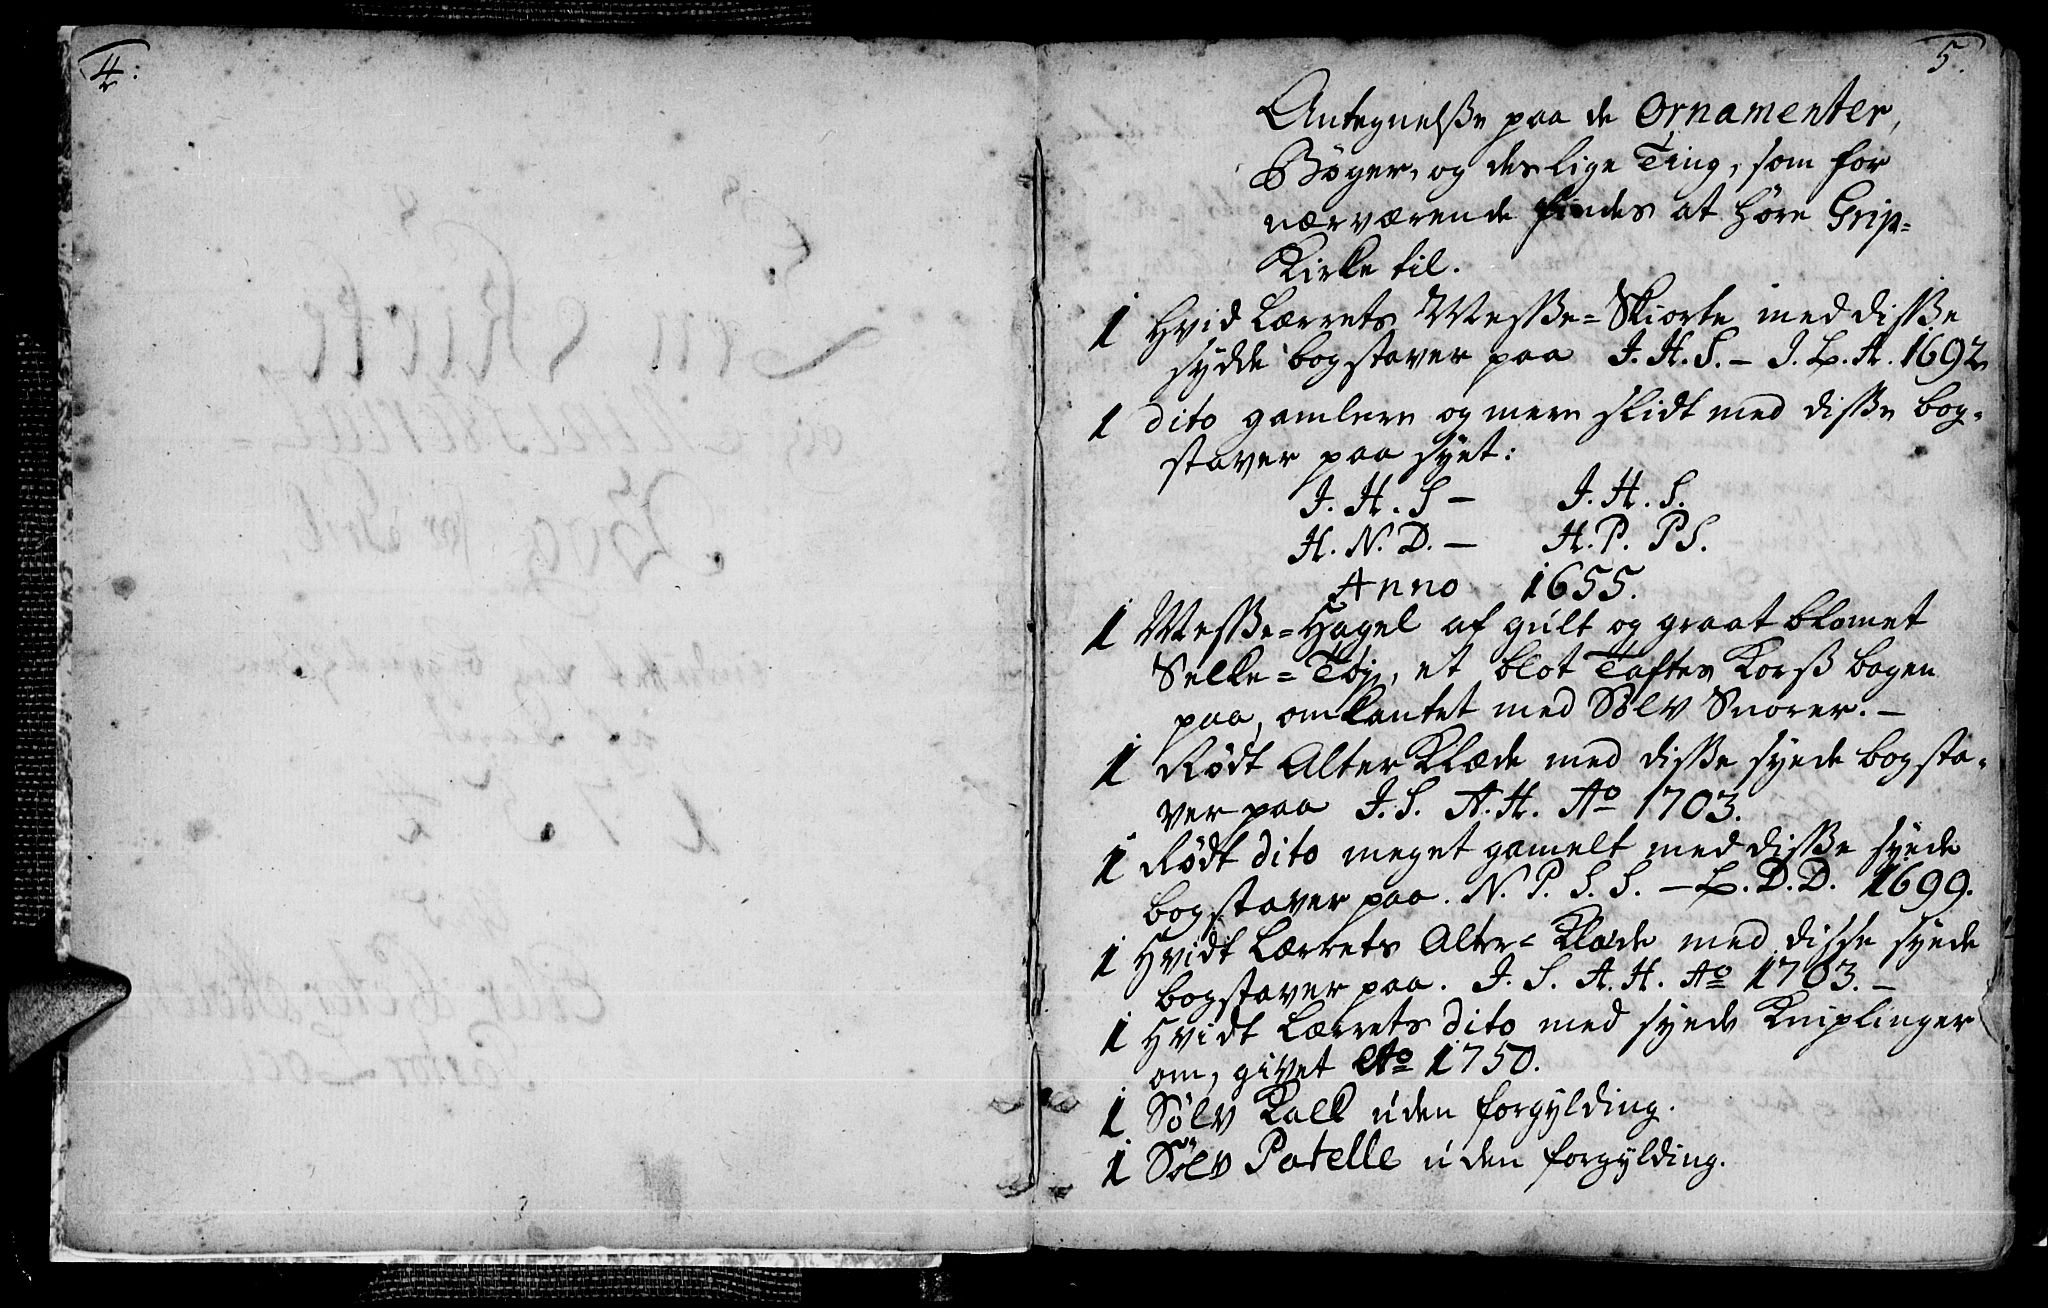 4:
5.
Antegnelsße paa de Ornamenter,
Bøger, og deslige Ting, som for
nærværende findes at høre Grip-
Kirke til.
1 Hvid Lærrets Messße=Skiorte med disße
sydde bogstaver paa J. H. S. – J. L. A. 1692
1 dito gamlere og mere slidt med disße bog-
staver paa syet:
J. H. S – J. H. S.
H. N. D. – H. P. PS.
Anno 1655.
1 Messße=Hagel af gult og graat blomet
Selke=Tøj, et blot Taftes Korß bagen
paa, omkantet med Sølv Snorer. –
1 Rødt Alter Klæde med disße syede bogsta-
ver paa J. S. A. H. Ao 1703.
1 Rødt dito meget gamelt med disße syede
bogstaver paa. N. P. S. S. – L. D. D. 1699.
1 Hvidt Lærrets Alter=Klæde med disse syede
bogstaver paa. J. S. A. H. Ao 1703. –
1 Hvidt Lærrets dito med syede Kniplinger
om, givet Ao 1750.
1 Sølv Kalk uden forgylding.
1 Sølv Patelle uden forgylding.